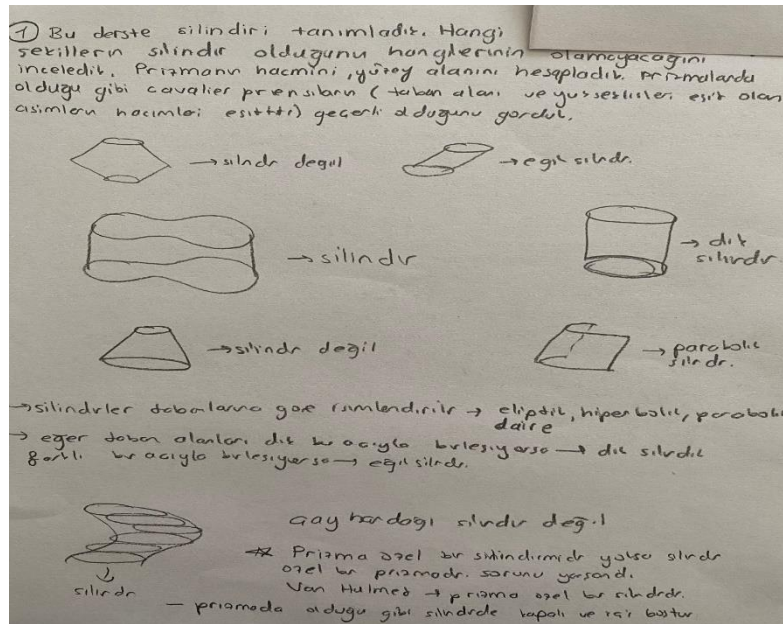 1 Bu derste silindiri tanımladık. Hangi
şekillerin silindir olduğunu hanglerinin olamayacağını
inceledik. Prizmanın hacmini, yüzey alanını hesapladık. prizmalarda
olduğu gibi cavalier prensibının (taban alanı ve yüksekliğleri eşit olan
cisimlerin hacimleri eşittir) geçerli olduğunu gördük.
→ silndr değil
→ egik silndr.
→ silindir
→ dik
silindir
→ silindr değil
→ parabolik
silndr.
→ silindirler tabanlarına göre isimlendirilir → eliptik, hiperbolik, parabolik
daire
→ eğer taban alanları dik bir açıyla birleşiyorsa → dik silndik
farklı bir açıyla birleşiyorsa → eğik silndr.
silindr
çay bardağı silndir değil
Prizma özel bir silindirmidir yoksa silndr
özel bir prizmadır. sorunu yaşandı.
Van Hulmes → prizma özel bir silndrdr.
— prizmada olduğu gibi silndrde kapalı ve içi boştur